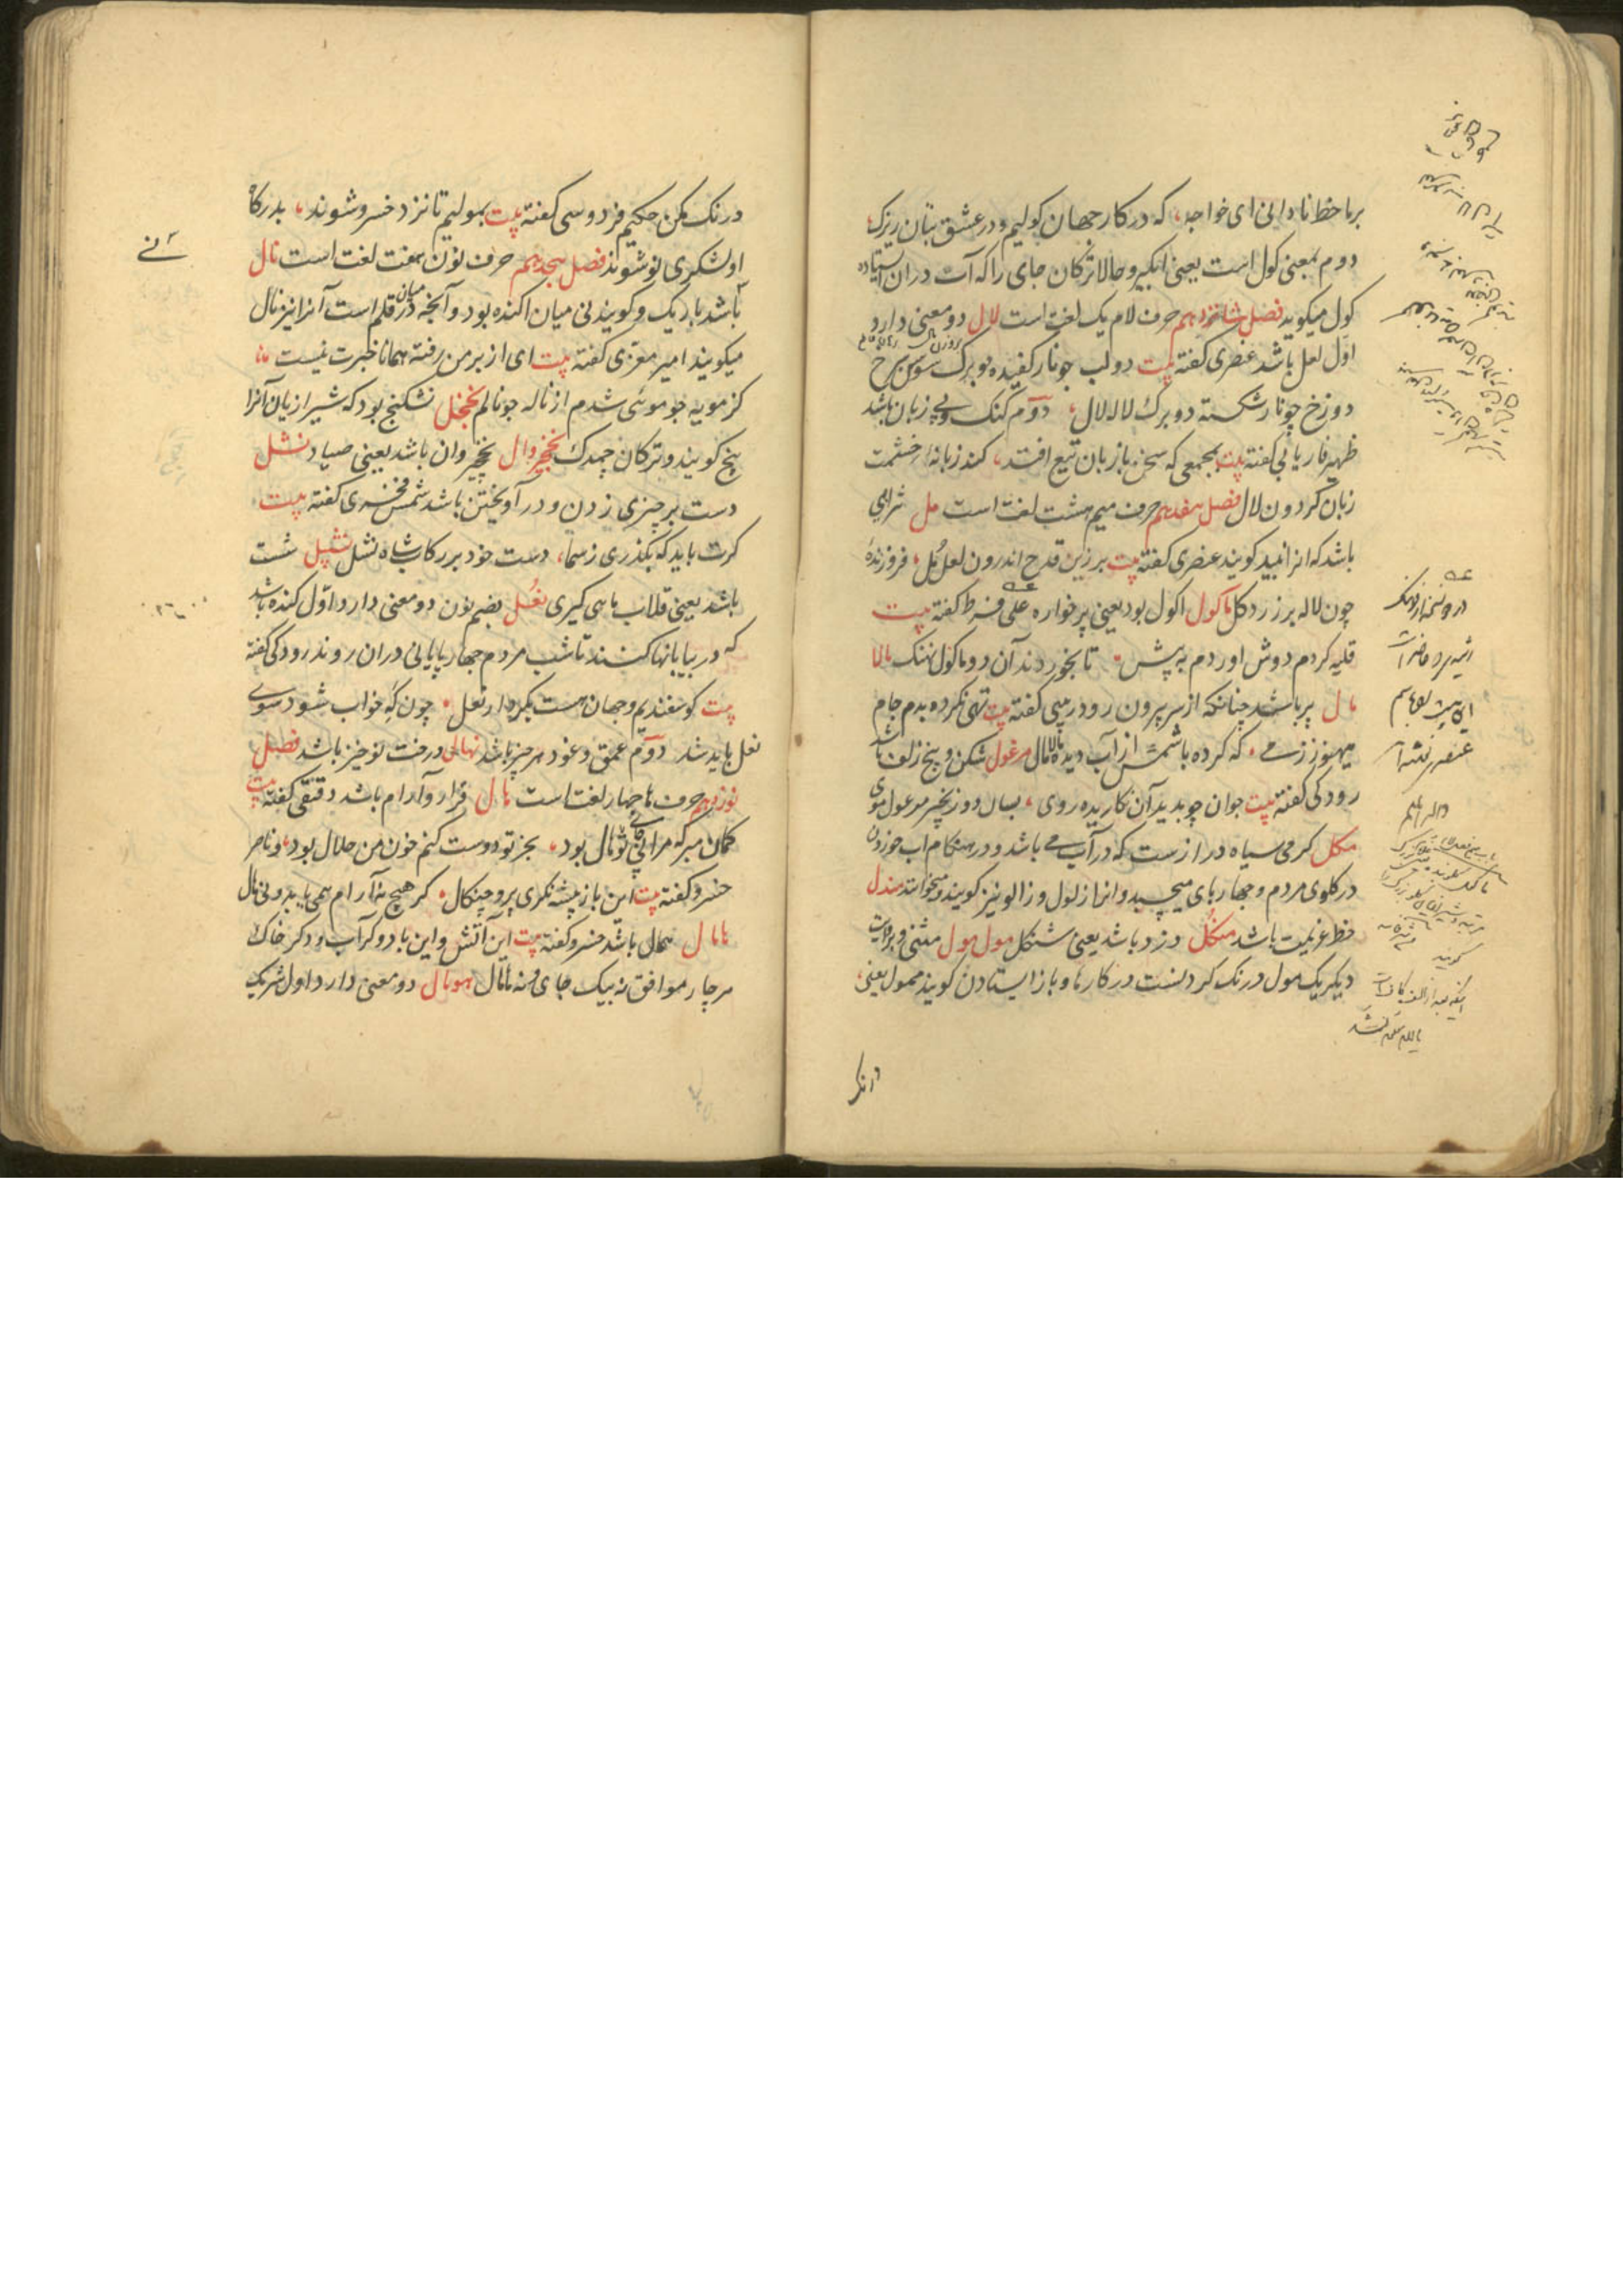 بر ما خط نادانی ای خواجه که در کار جهان کولیم و در عشق بتان زیرک
دوم بمعنی کول است یعنی ابکیر و حالا ترکان جای را که آب در ان ایستاده
کول میکویند فصل شانزدهم حرف لام یک لغت است لال دو معنی دارد
اوّل لعل باشد عنصری کفته بیت دو لب چو نار کفیده دو برک سوسن سرخ
دو رخ چو نار شکسته دو برک لاله لال دوّم کنک و بی زبان باشد
ظهیر فاریابی کفته بیت بمجمعی که سخن با زبان تیغ افتد کند زبانه خشمت
زبان کردون لال فصل هفدهم حرف میم هشت لغت است مل شرابی
باشد که انرا نبید کویند عنصری کفته بیت بر زین قدح اندرون لعل مُل فروزنده
چون لاله بر زرد کل ماکول اکول بود یعنی پر خواره علی قرط کفته بیت
قلیه کردم دوش اوردم به پیش تا بخوردند آن دو ماکول نهنک مالا
مال پر باشد چنانکه از سر بیرون رود رمیبی کفته بیت تهی نکرده بدم جام
می هنوز ز می که کرده باشمش از آب دیده مالامال مرغول شکن و پیچ زلف باشد
رودکی کفته بیت جوان چو بدید آن نکاریده روی بسان دو زنجیر مرغول موی
مکل کرمی سیاه دراز ست که در آب می باشد و در هنکام اب خوردن
در کلوی مردم و چهارپای میچسبد و انرا زلول و زالو نیز کویند و میخوانند مندل
خط عزیمت باشد منکُل دزد باشد یعنی شنکل مول مول مثنی و بروایت
دیکر یک مول درنک کردنست در کارها و باز ایستادن کویند ممول یعنی
درنک
درنک مکن حکیم فردوسی کفته بیت بمولیم تا نزد خسرو شوند بدرکاه
او لشکری نو شوند فصل هجدهم حرف نون هفت لغت است نال
نی باشد باریک و کویند نی میان اکنده بود و آنچه در میان قلم است آنرا نیز نال
میکویند امیر معزی کفته بیت ای از بر من رفته همانا خبرت نیست
کز مویه چو موئی شدم از ناله چو نالم نخجل نشکنج بود که شیرازیان آنرا
پنج کویند و ترکان چمدک نخچیروال نخچیروان باشد یعنی صیاد نشل
دست بر چیزی زدن و در آویختن باشد شمس فخری کفته بیت
کرت باید که بکذری ز سما دست خود بر رکاب شاه نشل نشپل شست
باشد یعنی قلاب ماهی کیری نغُل بضم نون دو معنی دارد اوّل کنده باشد
که در بیابانها کنند تا شب مردم چهارپایانی در ان روند رودکی کفته
بیت کوسفندیم و جهان هست بکردار نغل چون که خواب شود سوی
نغل باید شد دوّم عمق و غور هر چیز باشد نهال درخت نو خیز باشد فصل
نوزدهم حرف ها چهار لغت است هال قرار و آرام باشد دقیقی کفته بیت
کمان مبر که مرا بی تو هال بود بجز تو دوست کنم خون من حلال بود و ناصر
خسرو کفته بیت این باز پیشه نکری پر و چنکال کر هیچ نه آرام همی یابد و نی هال
هامال همال باشد خسرو کفته بیت این آتش و این باد و کر آب و دکر خاک
هر چار موافق نه بیک جای و نه هامال همومال دو معنی دارد اول شریک